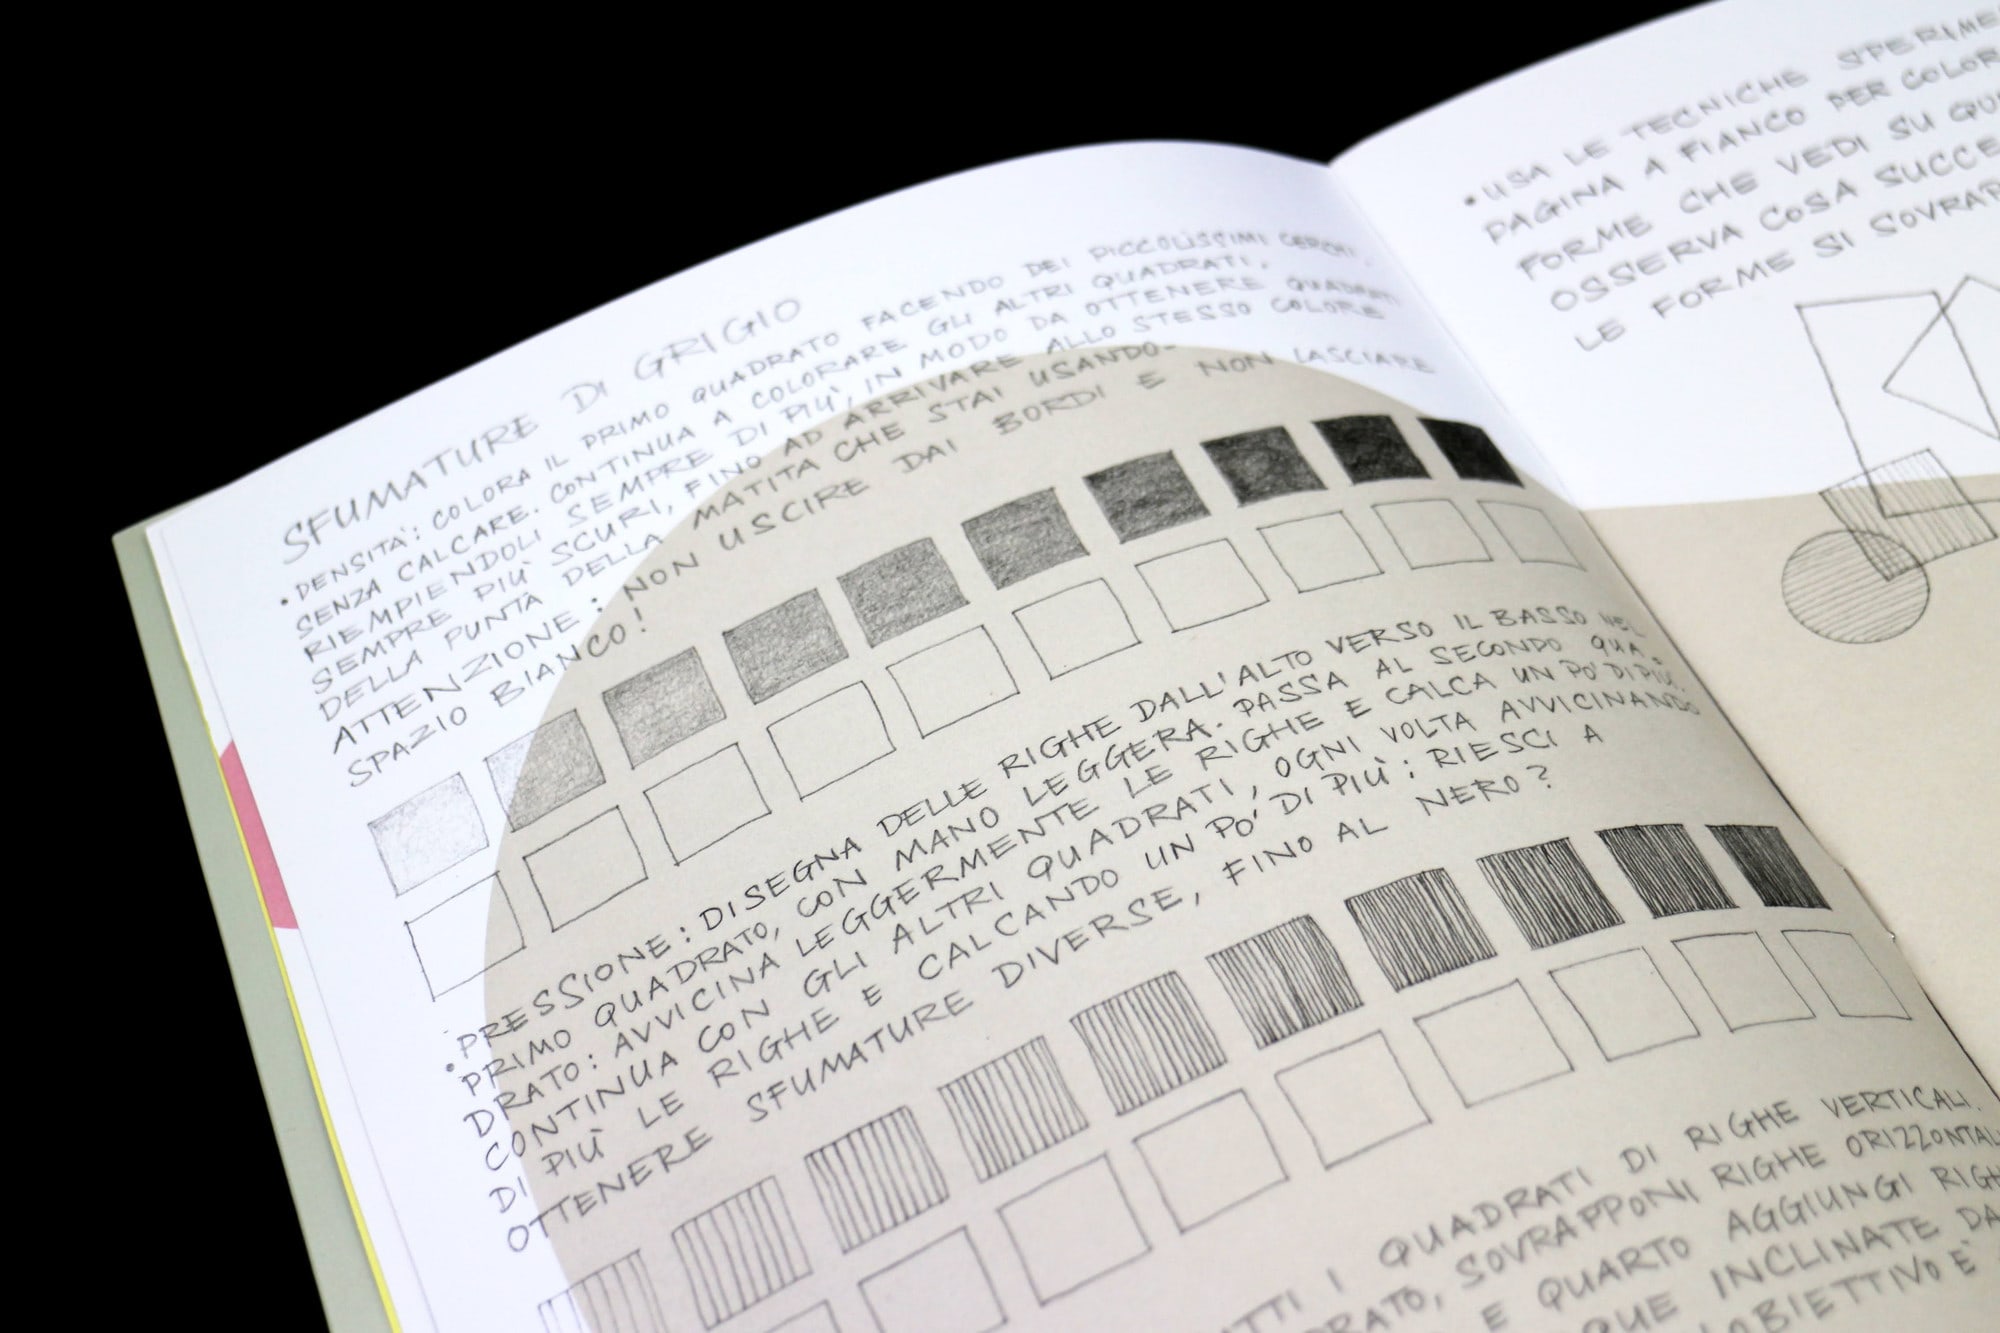 SFUMATURE DI GRIGIO
• DENSITÀ: COLORA IL PRIMO QUADRATO FACENDO DEI PICCOLISSIMI CERCHI,
SENZA CALCARE. CONTINUA A COLORARE GLI ALTRI QUADRATI,
RIEMPIENDOLI SEMPRE DI PIÙ, IN MODO DA OTTENERE QUADRATI
SEMPRE PIÙ SCURI, FINO AD ARRIVARE ALLO STESSO COLORE
DELLA PUNTA DELLA MATITA CHE STAI USANDO-
ATTENZIONE: NON USCIRE DAI BORDI E NON LASCIARE
SPAZIO BIANCO!
• PRESSIONE: DISEGNA DELLE RIGHE DALL'ALTO VERSO IL BASSO NEL
PRIMO QUADRATO, CON MANO LEGGERA. PASSA AL SECONDO QUA-
DRATO: AVVICINA LEGGERMENTE LE RIGHE E CALCA UN PO' DI PIÙ.
CONTINUA CON GLI ALTRI QUADRATI, OGNI VOLTA AVVICINANDO
DI PIÙ LE RIGHE E CALCANDO UN PO' DI PIÙ: RIESCI A
OTTENERE SFUMATURE DIVERSE, FINO AL NERO?
I QUADRATI DI RIGHE VERTICALI.
SOVRAPPONI RIGHE
E QUARTO AGGIUNGI
INCLINATE
OBIETTIVO È
• USA LE TECNICHE
PAGINA A FIANCO PER
FORME CHE VEDI SU
OSSERVA COSA
LE FORME SI